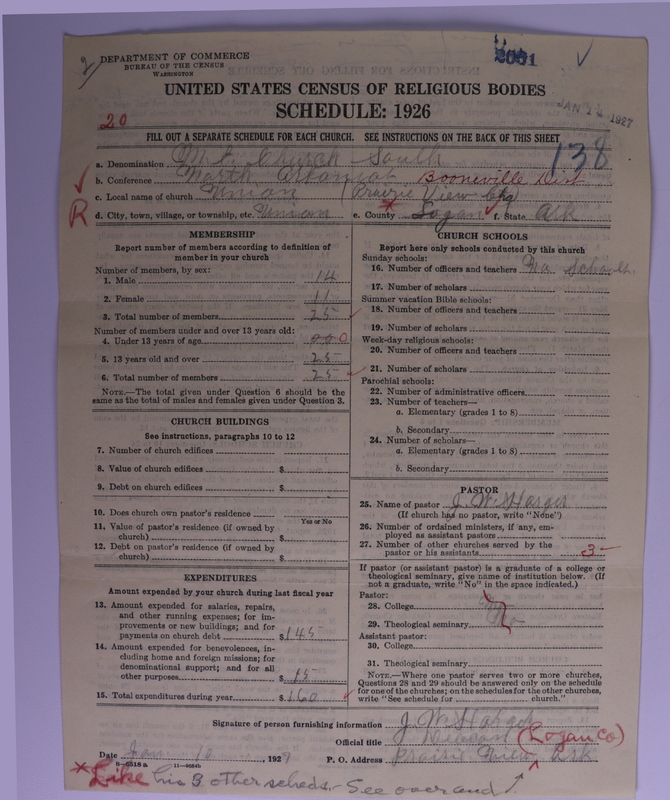 2
DEPARTMENT OF COMMERCE
BUREAU OF THE CENSUS
WASHINGTON
2001
JAN 14 1927
UNITED STATES CENSUS OF RELIGIOUS BODIES
SCHEDULE: 1926
20
FILL OUT A SEPARATE SCHEDULE FOR EACH CHURCH. SEE INSTRUCTIONS ON THE BACK OF THIS SHEET
138
a. Denomination M. E. Church South
b. Conference North Arkansas Booneville Dist
c. Local name of church Union (Prairie View Chg)
R
d. City, town, village, or township, etc. Union e. County * Logan f. State Ark
MEMBERSHIP
Report number of members according to definition of member in your church
Number of members, by sex:
1. Male 14
2. Female 11
3. Total number of members 25
Number of members under and over 13 years old:
4. Under 13 years of age 000
5. 13 years old and over 25
6. Total number of members 25
NOTE.—The total given under Question 6 should be the same as the total of males and females given under Question 3.
CHURCH BUILDINGS
See instructions, paragraphs 10 to 12
7. Number of church edifices
8. Value of church edifices $
9. Debt on church edifices $
10. Does church own pastor's residence
Yes or No
11. Value of pastor's residence (if owned by church) $
12. Debt on pastor's residence (if owned by church) $
EXPENDITURES
Amount expended by your church during last fiscal year
13. Amount expended for salaries, repairs, and other running expenses; for improvements or new buildings; and for payments on church debt $145
14. Amount expended for benevolences, including home and foreign missions; for denominational support; and for all other purposes $15
15. Total expenditures during year $160
CHURCH SCHOOLS
Report here only schools conducted by this church
Sunday schools:
16. Number of officers and teachers No Schools
17. Number of scholars
Summer vacation Bible schools:
18. Number of officers and teachers
19. Number of scholars
Week-day religious schools:
20. Number of officers and teachers
21. Number of scholars
Parochial schools:
22. Number of administrative officers
23. Number of teachers—
a. Elementary (grades 1 to 8)
b. Secondary
24. Number of scholars—
a. Elementary (grades 1 to 8)
b. Secondary
PASTOR
25. Name of pastor J. W.
(If church has no pastor, write "None")
26. Number of ordained ministers, if any, employed as assistant pastors
27. Number of other churches served by the pastor or his assistants 3
If pastor (or assistant pastor) is a graduate of a college or theological seminary, give name of institution below. (If not a graduate, write "No" in the space indicated.)
Pastor:
28. College
29. Theological seminary No
Assistant pastor:
30. College
31. Theological seminary
NOTE.—Where one pastor serves two or more churches, Questions 28 and 29 should be answered only on the schedule for one of the churches; on the schedules for the other churches, write "See schedule for church."
Signature of person furnishing information J. W.
Official title (Logan Co)
Date Jan 10, 1927 P. O. Address Prairie View Ark
8-5518 a 11-9684b
* Like his 3 other scheds. - See over and